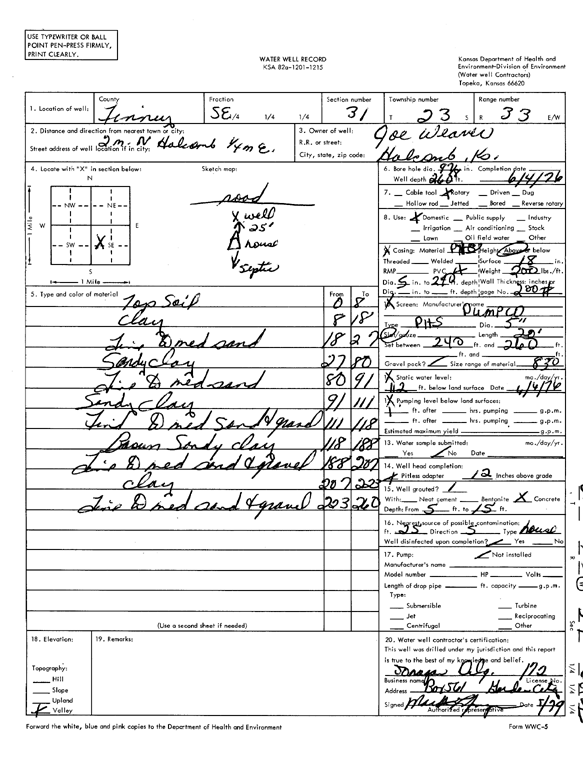 USE TYPEWRITER OR BALL
POINT PEN-PRESS FIRMLY,
PRINT CLEARLY.
WATER WELL RECORD
KSA 82a-1201-1215
Kansas Department of Health and
Environment-Division of Environment
(Water well Contractors)
Topeka, Kansas 66620
1. Location of well:
County
Finney
Fraction
SE 1/4 1/4 1/4
Section number
31
Township number
T 23 S
Range number
R 33 E/W
2. Distance and direction from nearest town or city:
2 m. N Holcomb
Street address of well location if in city:
3. Owner of well: Joe Weaver
R.R. or street:
City, state, zip code: Holcomb, Ks.
4. Locate with "X" in section below:
N
NW NE
W E
SW X SE
S
1 Mile
1 Mile
Sketch map:
road
X well
25'
house
Septic
6. Bore hole dia. in. Completion date
Well depth 260 ft. 6/4/76
7. Cable tool X Rotary Driven Dug
Hollow rod Jetted Bored Reverse rotary
8. Use: X Domestic Public supply Industry
Irrigation Air conditioning Stock
Lawn Oil field water Other
9. Casing: Material Height: Above or below
Threaded Welded Surface 18 in.
RMP PVC Weight lbs./ft.
Dia. 5 in. to 240 ft. depth Wall Thickness: inches or
Dia. in. to ft. depth gage No. 200#
5. Type and color of material From To
Top Soil 0 8
Clay 8 18
Fine & med sand 18 27
Sandy clay 27 80
Fine & med sand 80 91
Sandy Clay 91 111
Fine & med Sand & gravel 111 118
Brown Sandy clay 118 188
Fine & med sand & gravel 188 207
Clay 207
Fine & med sand & gravel 260
(Use a second sheet if needed)
10. Screen: Manufacturer's name
Type Dia. 5"
Slot/gauze Length 20'
Set between 240 ft. and 260 ft.
ft. and ft.
Gravel pack? Size range of material
11. Static water level: mo./day/yr.
ft. below land surface Date 6/4/76
12. Pumping level below land surfaces:
ft. after hrs. pumping g.p.m.
ft. after hrs. pumping g.p.m.
Estimated maximum yield g.p.m.
13. Water sample submitted: mo./day/yr.
Yes No Date
14. Well head completion:
Pitless adapter 12 Inches above grade
15. Well grouted?
With: Neat cement Bentonite X Concrete
Depth: From 5 ft. to 15 ft.
16. Nearest source of possible contamination:
ft. 25 Direction S Type house
Well disinfected upon completion? Yes No
17. Pump: Not installed
Manufacturer's name
Model number HP Volts
Length of drop pipe ft. capacity g.p.m.
Type:
Submersible Turbine
Jet Reciprocating
Centrifugal Other
18. Elevation:
Topography:
Hill
Slope
Upland
Valley
19. Remarks:
20. Water well contractor's certification:
This well was drilled under my jurisdiction and this report
is true to the best of my knowledge and belief.
Business name License No.
Address Box 561 Garden City
Signed Date
Authorized representative
Sec
1/4 1/4 1/4
Forward the white, blue and pink copies to the Department of Health and Environment
Form WWC-5